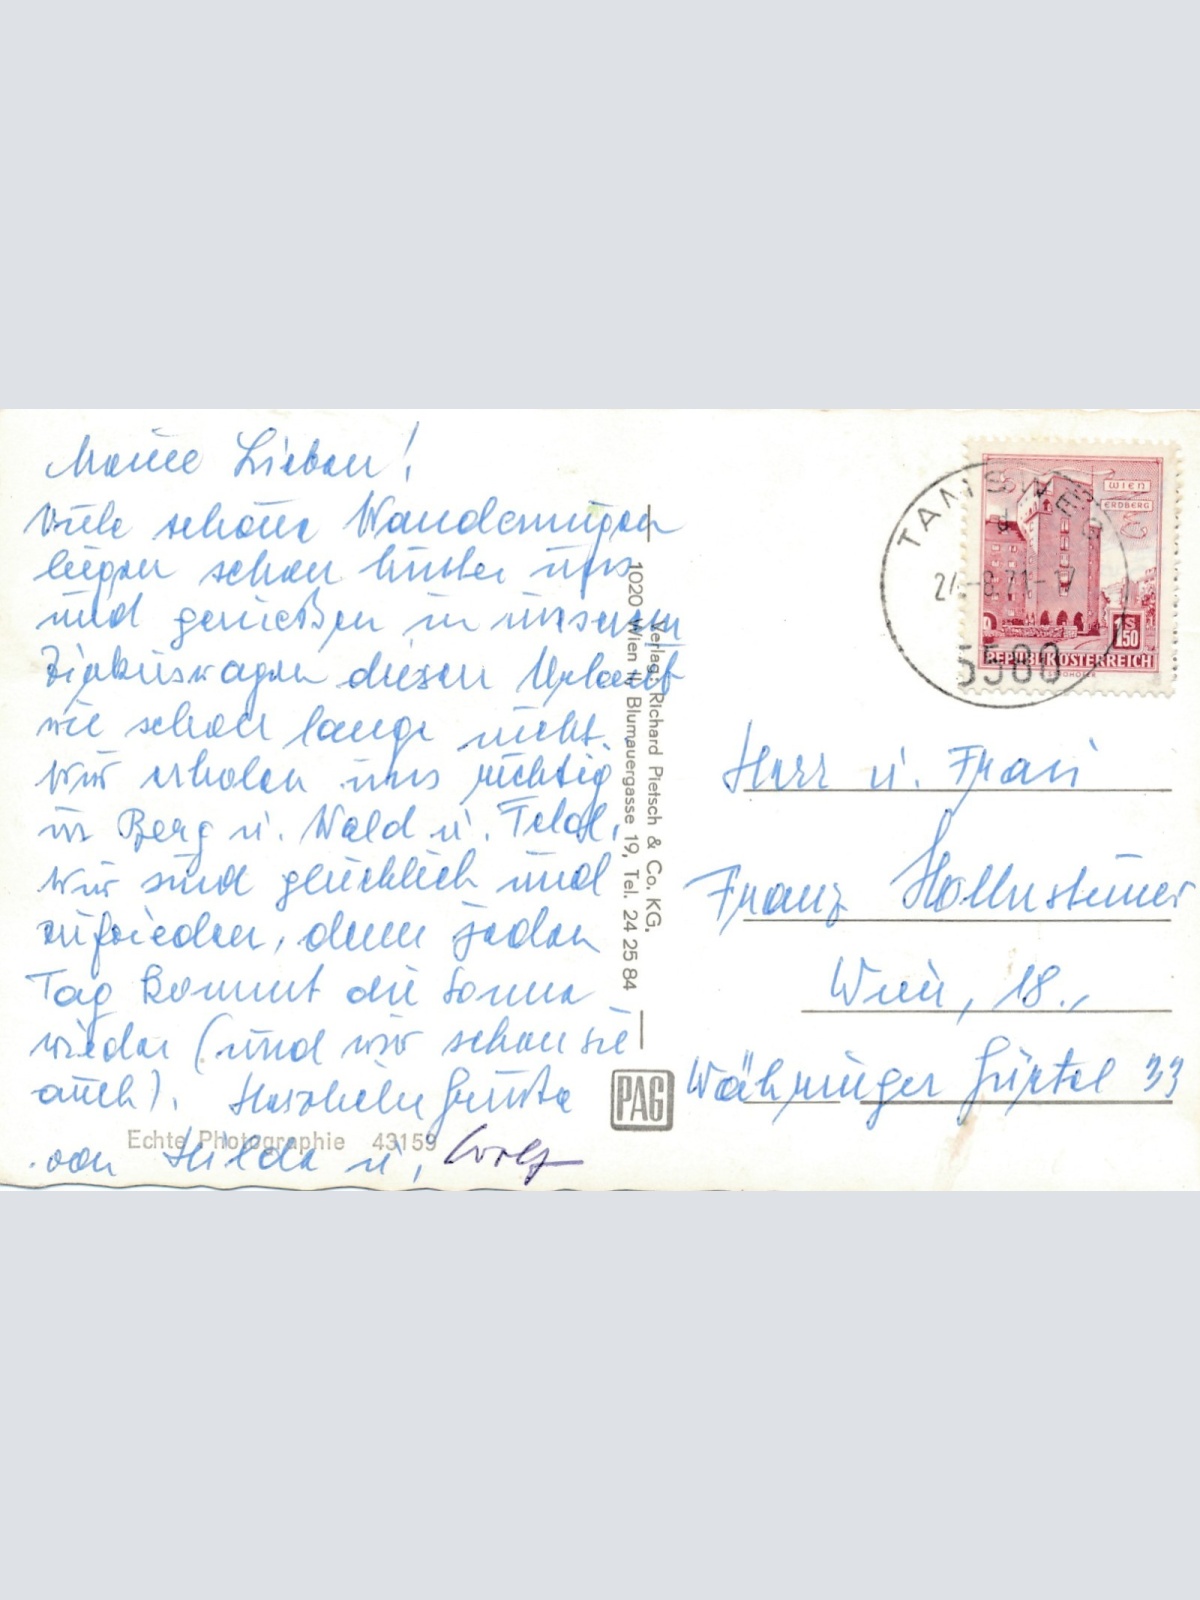 Meine Lieben!
Viele schöne Wanderungen
liegen schon hinter uns
und genießen in unserem
Zirkuswagen diesen Urlaub
wie schon lange nicht.
Wir erholen uns richtig
in Berg u. Wald u. Feld.
Wir sind glücklich und
zufrieden, denn jeden
Tag kommt die Sonne
wieder (und wir schon sie
auch). Herzliche Grüße
von Hilde u. Wolf
Echte Photographie 43159
Verlag: Richard Pietsch & Co. KG.
1020 Wien II, Blumauergasse 19, Tel. 24 25 84
PAG
TAMSWEG
-8.71-17
5580
WIEN
ERDBERG
1S50
REPUBLIK ÖSTERREICH
Herr u. Frau
Franz Hollnsteiner
Wien, 18.,
Währinger Gürtel 33